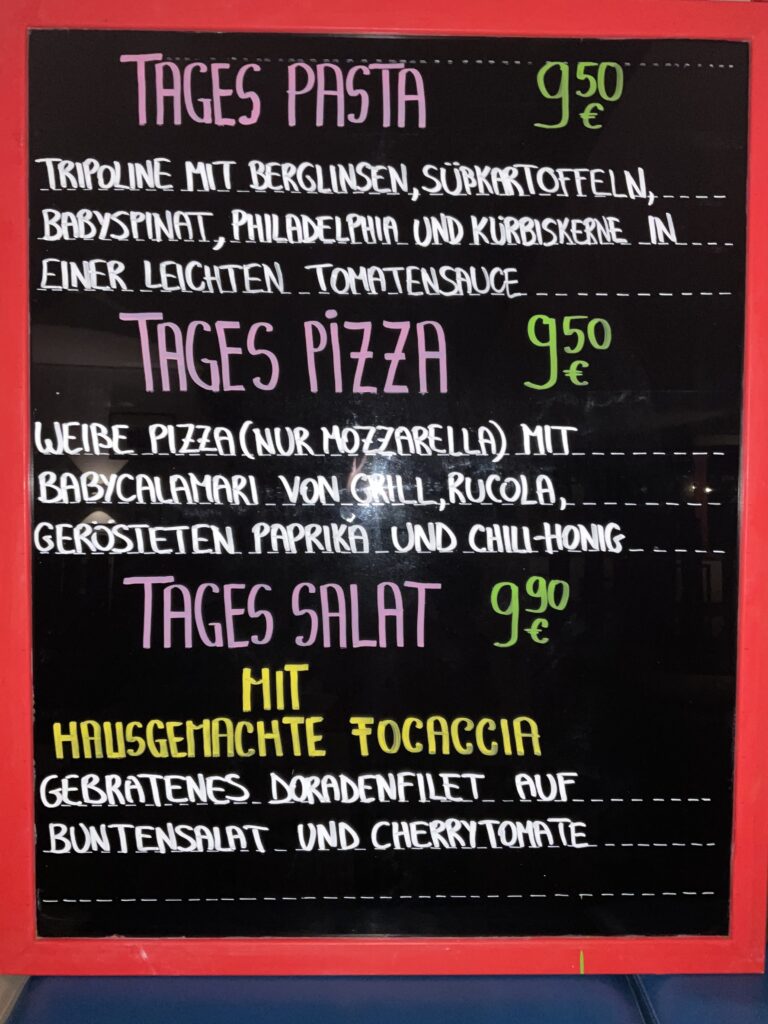 TAGES PASTA 9,50 €
TRIPOLINE MIT BERGLINSEN, SÜßKARTOFFELN,
BABYSPINAT, PHILADELPHIA UND KÜRBISKERNE IN
EINER LEICHTEN TOMATENSAUCE
TAGES PIZZA 9,50 €
WEIßE PIZZA (NUR MOZZARELLA) MIT
BABYCALAMARI VON GRILL, RUCOLA,
GERÖSTETEN PAPRIKA UND CHILI-HONIG
TAGES SALAT 9,90 €
MIT
HAUSGEMACHTE FOCACCIA
GEBRATENES DORADENFILET AUF
BUNTENSALAT UND CHERRYTOMATE